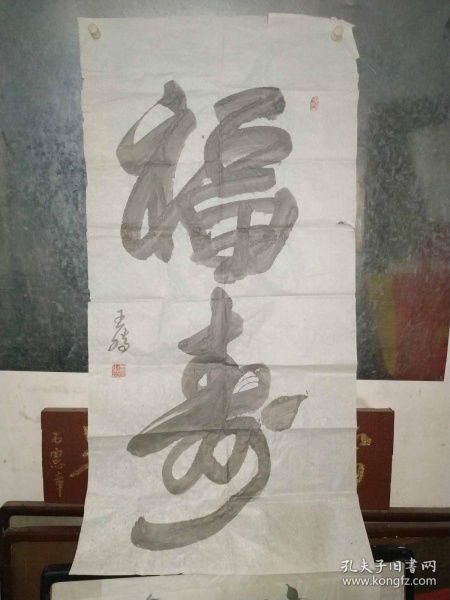 福寿
王
孔夫子旧书网
www.kongfz.com